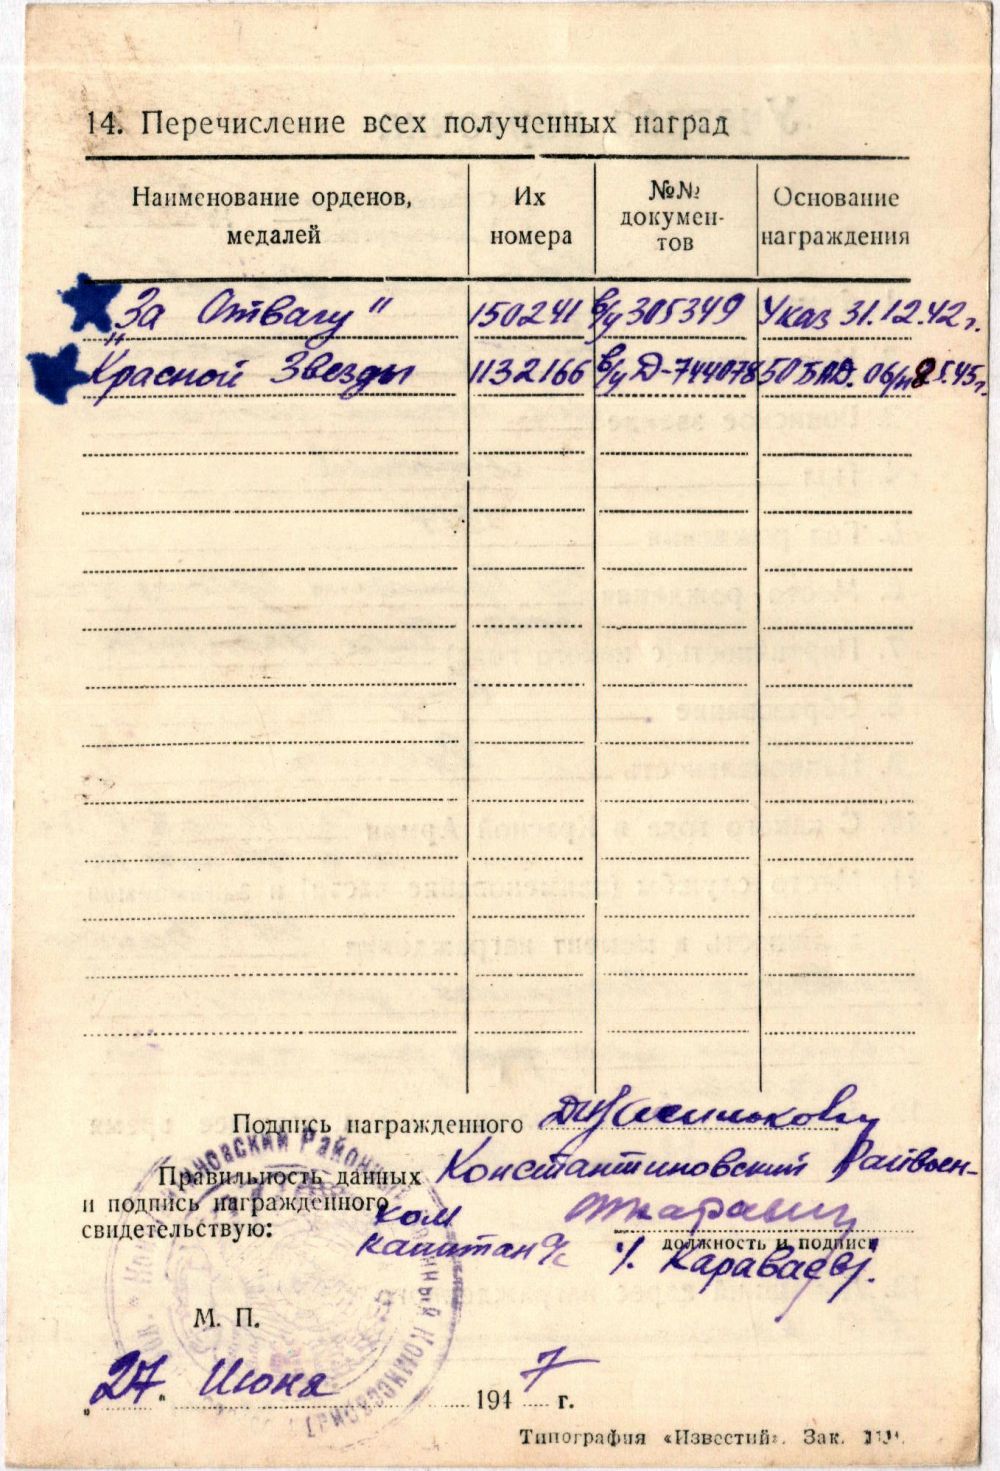 14. Перечисление всех полученных наград
Наименование орденов, медалей
Их номера
№№ докумен-
тов
Основание награждения
„За Отвагу" 150241 в/у 305349 Указ 31.12.42 г.
Красной Звезды 1132166 в/у Д-744078 50 БАД. 8.5.45г.
Подпись награжденного
Правильность данных Константиновский Райвоен-
и подпись награжденного ком
свидетельствую: капитан
должность и подпись
/Караваев/.
М. П.
„27" Июня 1947 г.
Типография «Известий». Зак.